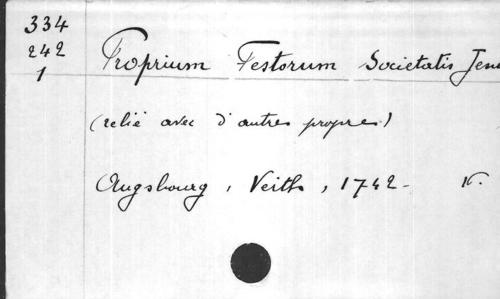 334
242
1
Proprium Festorum Societatis Jesu
(relié avec d'autres propres)
Augsbourg, Veith, 1742.